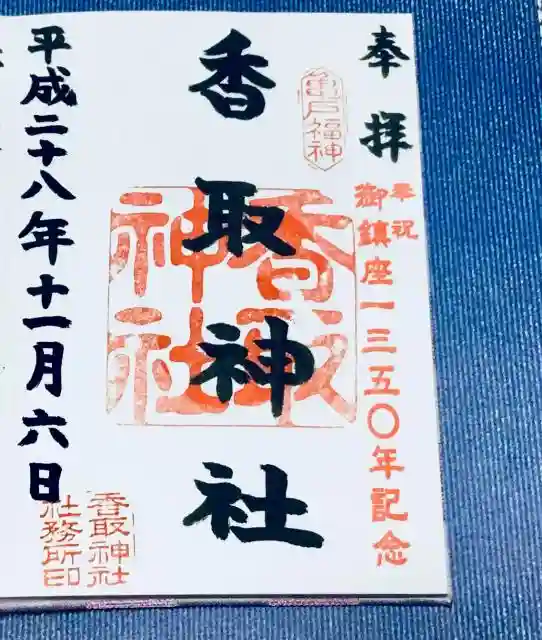 奉拝
亀戸福神
奉祝
御鎮座一三五〇年記念
香取神社
香取神社
平成二十八年十一月六日
香取神社
社務所印